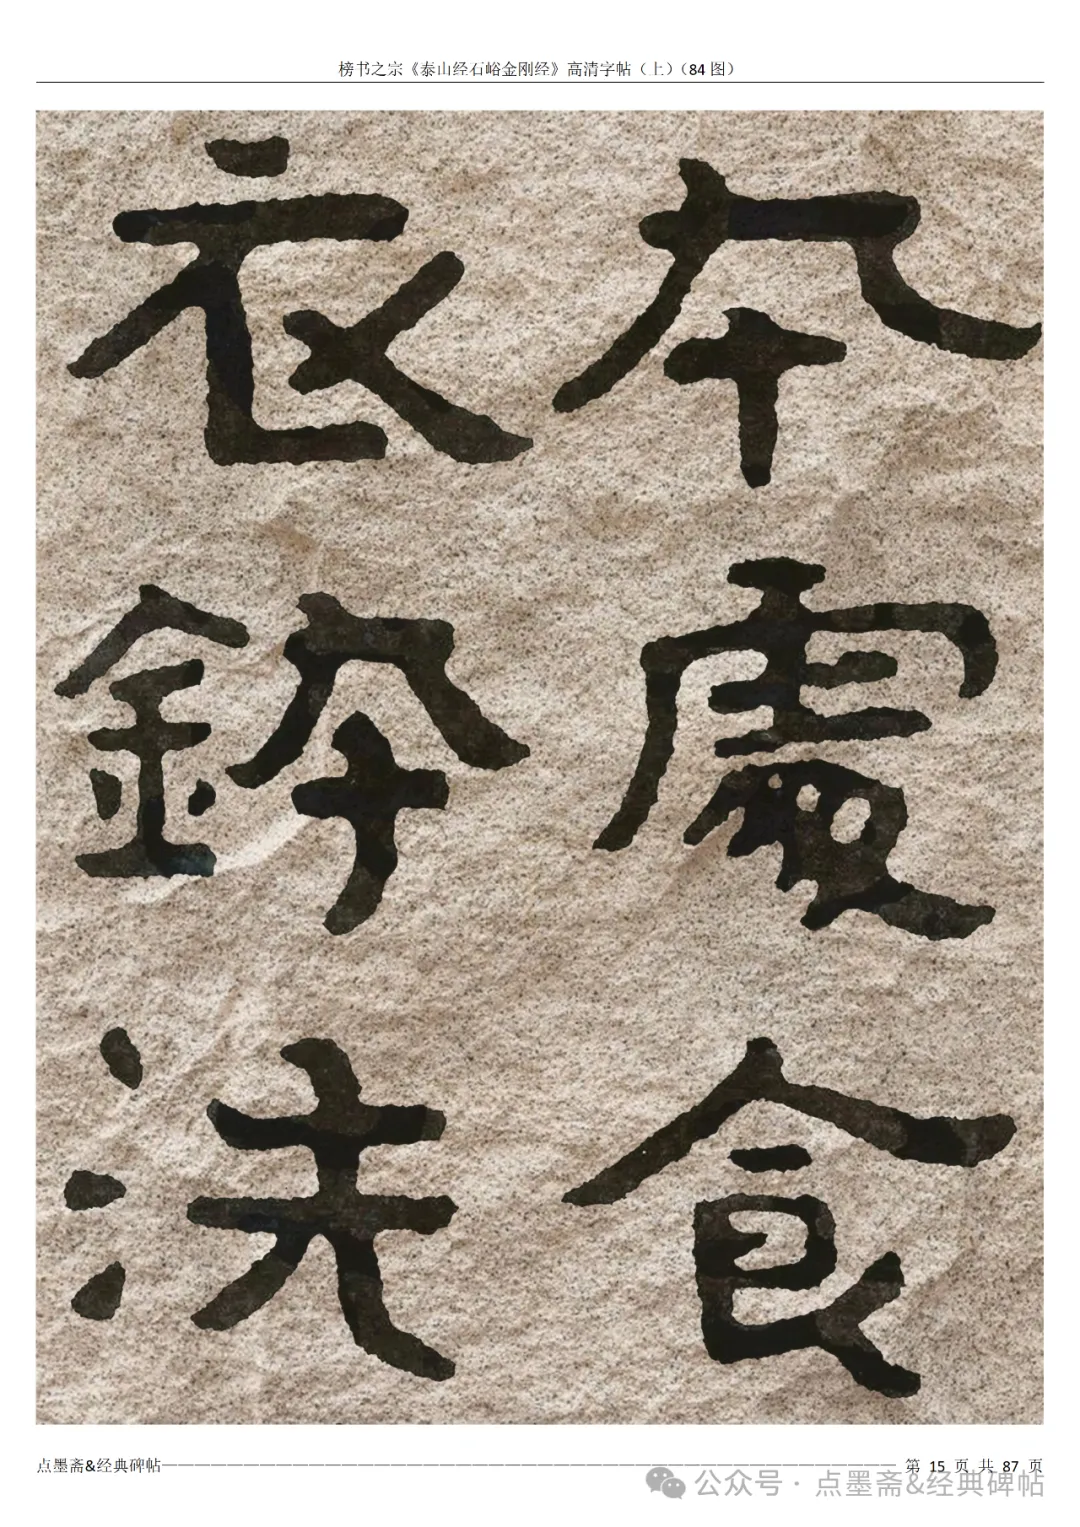 榜书之宗《泰山经石峪金刚经》高清字帖（上）（84 图）
本處食
衣鉢洗
点墨斋&经典碑帖————————————————————第 15 页 共 87 页
公众号 · 点墨斋&经典碑帖